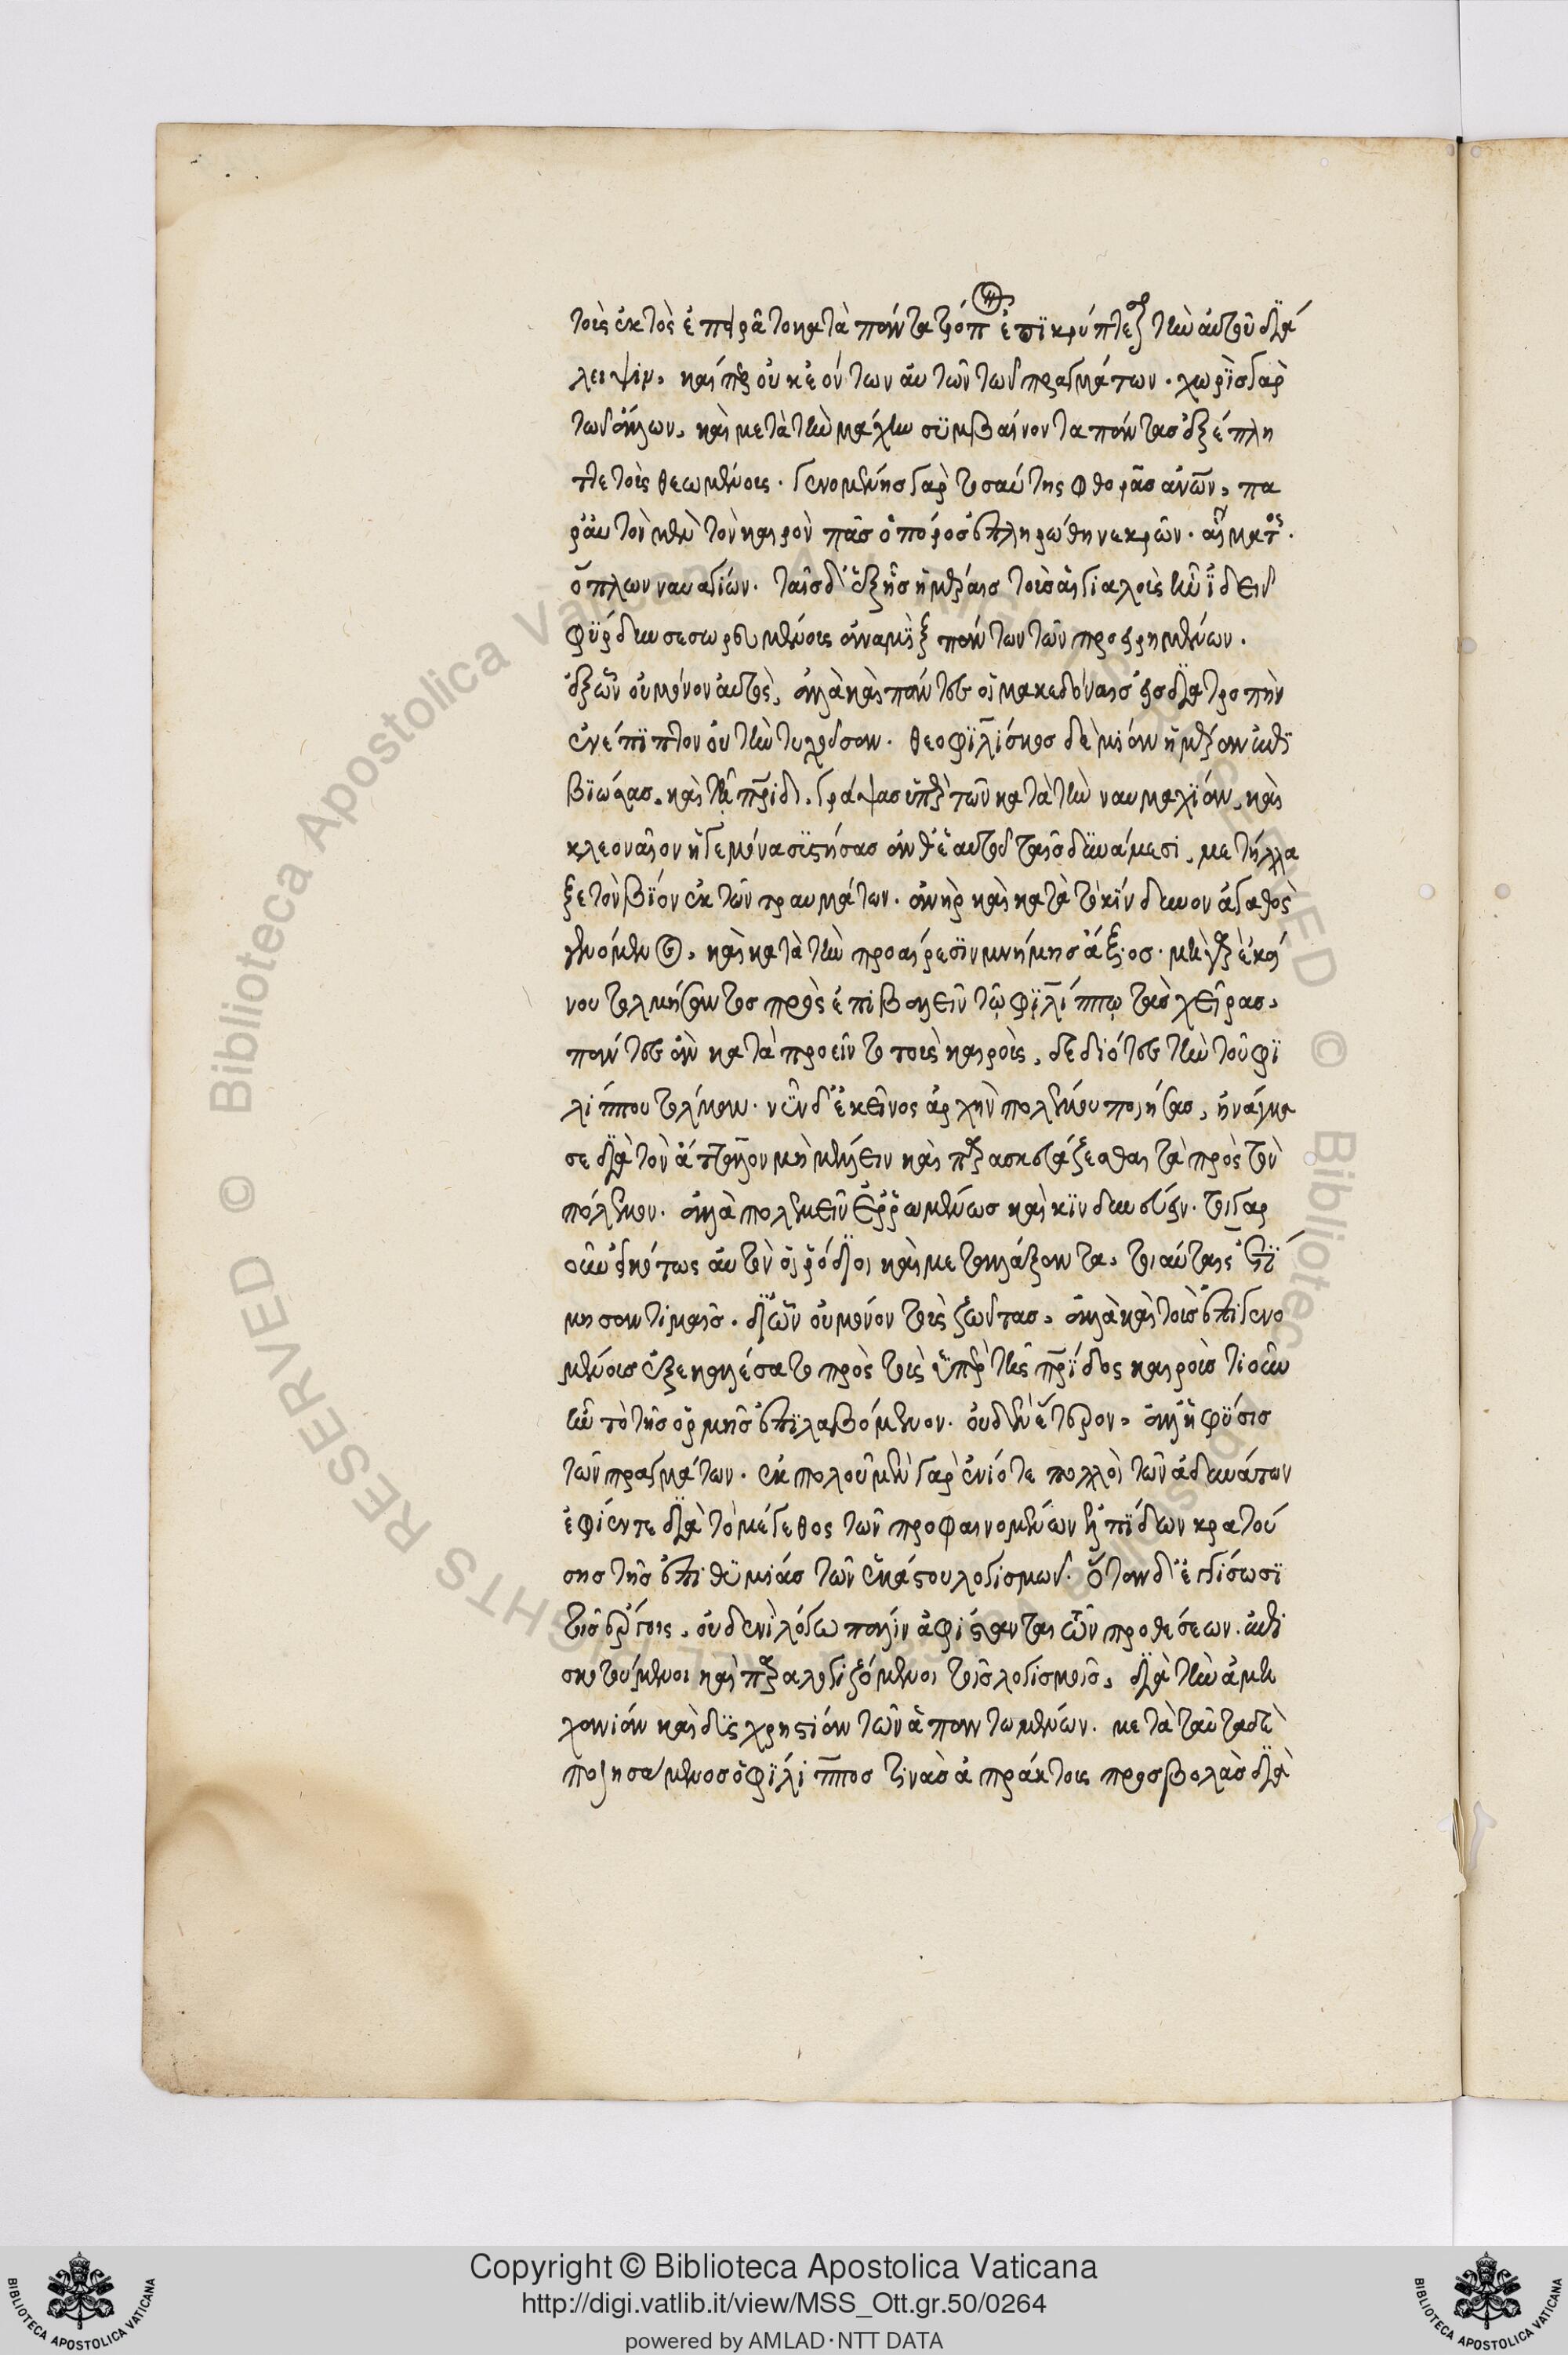 τοῖς ἐκτὸς ἐπειρᾶτο κατὰ πάντα τρόπον ἐπϊκρύπτεσθαι τὴν αὐτοῦ διά
λειψιν, καίπερ οὐκ ἐόντων αὐτῶν τῶν πραγμάτων. χωρὶς γὰρ
τῶν ἄλλων, καὶ μετὰ τὴν μάχην συμβαίνοντα πάντας ἐξέπλη
ττε τοὺς θεωμένους. γενομένης γὰρ τοσαύτης φθορᾶς ἀνθρώπων, πα
ρ' αὐτὸν μὲν τὸν καιρὸν πᾶς ὁ πόρος ἐπληρώθη νεκρῶν. αἵματος.
ὅπλων ναυαγίων. ταῖς δ' ἑξῆς ἡμέραις τοὺς αἰγιαλοὺς ἦν ἰδεῖν
φύρδην σεσωρευμένους ἀναμὶξ πάντων τῶν προειρημένων.
ἐξ ὧν οὐ μόνον αὐτὸς, ἀλλὰ καὶ πάντες οἱ μακεδόνας εἰς διατροπὴν
ἐνέπιπτον οὐ τὴν τυχοῦσαν. θεοφιλίσκος δὲ μίαν ἡμέραν ἐπι
βιώσας, καὶ τῇ πατρίδι γράψας ὑπὲρ τῶν κατὰ τὴν ναυμαχίαν, καὶ
κλεοναῖον ἡγεμόνα συστήσας ἀνθ' ἑαυτοῦ ταῖς δυνάμεσι, μετήλλα
ξε τὸν βίον ἐκ τῶν τραυμάτων. ἀνὴρ καὶ κατὰ τὸν κίνδυνον ἀγαθὸς
γενόμενος, καὶ κατὰ τὴν προαίρεσιν μνήμης ἄξιος. μὴ γὰρ ἐκεί
νου τολμήσαντος πρὸς ἐπιβαλεῖν τῷ φιλίππῳ τὰς χεῖρας,
πάντες ἂν κατὰ προεῖντο τοὺς καιροὺς, δεδιότες τὴν τοῦ φι
λίππου τόλμαν. νῦν δ' ἐκεῖνος ἀρχὴν πολέμου ποιήσας, ἠνάγκα
σε διὰ τὸν ἀπόπλουν μὴ μέλλειν καὶ παρασκευάζεσθαι τὰ πρὸς τὸν
πόλεμον. ἀλλὰ πολεμεῖν ἐρρωμένως καὶ κινδυνεύειν. τοιγαρ
οῦν εἰκότως αὐτὸν οἱ ῥόδιοι καὶ μεταλλάξαντα, τοιαύταις ἐτί
μησαν τιμαῖς. δι' ὧν οὐ μόνον τοὺς ζῶντας, ἀλλὰ καὶ τοὺς ἐπιγενο
μένους ἐξεκαλέσατο πρὸς τοὺς ὑπὲρ τῆς πατρίδος καιροὺς τί οὖν
ἦν τὸ τῆς ὁρμῆς ἐπιλαβόμενον. οὐδὲν ἕτερον, ἀλλ' ἡ φύσις
τῶν πραγμάτων. ἐκ πολλοῦ μὲν γὰρ ἐνίοτε πολλοὶ τῶν ἀδυνάτων
ἐφίενται διὰ τὸ μέγεθος τῶν προφαινομένων ἐλπίδων κρατού
σης τῆς ἐπιθυμίας τῶν ἑκάστου λογισμῶν. ὅταν δ' ἐγγίσωσι
τοῖς ἔργοις, οὐδενὶ λόγῳ πάλιν ἀφίστανται τῶν προθέσεων. ἐπι
σκοτούμενοι καὶ παραλογιζόμενοι τοῖς λογισμοῖς, διὰ τὴν ἀμη
χανίαν καὶ δυσχρηστίαν τῶν ἀπαντωμένων. μετὰ ταῦτα δὲ
ποιησάμενος ὁ φίλιππος τινὰς ἀπράκτους προσβολὰς διὰ
Copyright © Biblioteca Apostolica Vaticana
http://digi.vatlib.it/view/MSS_Ott.gr.50/0264
powered by AMLAD·NTT DATA